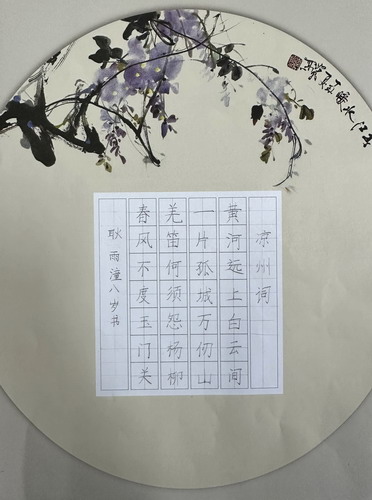 凉州词
黄河远上白云间
一片孤城万仞山
羌笛何须怨杨柳
春风不度玉门关
耿雨潼八岁书